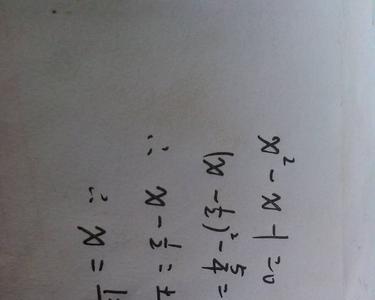 x² - x - 1 = 0
(x - 1/2)² - 5/4 =
∴ x - 1/2 =
∴ x =